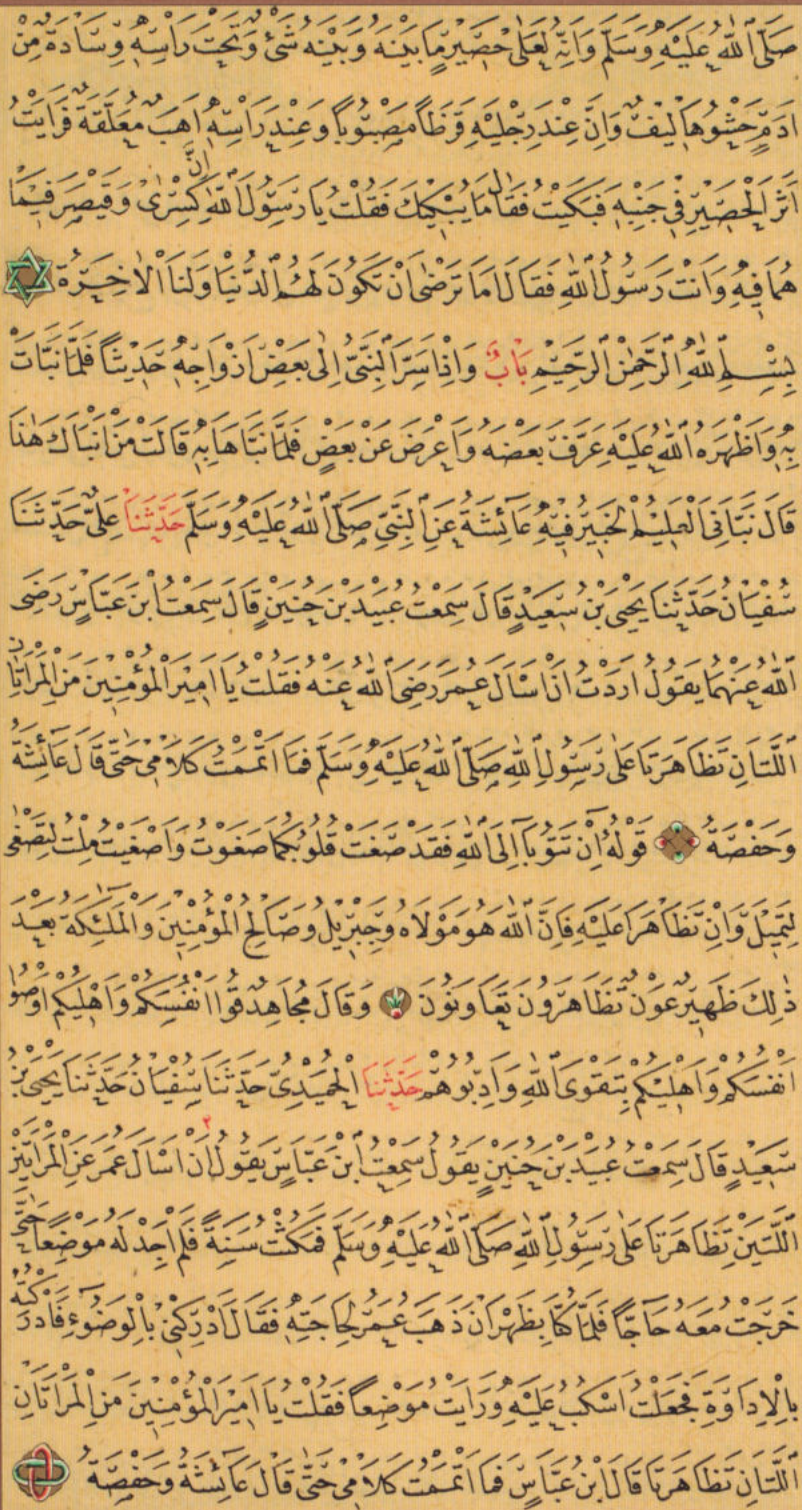 صَلَّى اللّٰهُ عَلَيْهِ وَسَلَّمَ وَاِنَّهُ لَعَلٰى حَصِيرٍ مَا بَيْنَهُ وَبَيْنَهُ شَيْءٌ وَتَحْتَ رَأْسِهِ وِسَادَةٌ مِنْ
اَدَمٍ حَشْوُهَا لِيفٌ وَاِنَّ عِنْدَ رِجْلَيْهِ قَرَظًا مَصْبُوبًا وَعِنْدَ رَأْسِهِ اَهَبٌ مُعَلَّقَةٌ فَرَاَيْتُ
اَثَرَ الْحَصِيرِ فِي جَنْبِهِ فَبَكَيْتُ فَقَالَ مَا يُبْكِيكَ فَقُلْتُ يَا رَسُولَ اللّٰهِ اِنَّ كِسْرٰى وَقَيْصَرَ فِيمَا
هُمَا فِيهِ وَاَنْتَ رَسُولُ اللّٰهِ فَقَالَ اَمَا تَرْضٰى اَنْ تَكُونَ لَهُمُ الدُّنْيَا وَلَنَا الْاٰخِرَةُ
بِسْمِ اللّٰهِ الرَّحْمٰنِ الرَّحِيمِ بَابٌ وَاِذْ اَسَرَّ النَّبِيُّ اِلٰى بَعْضِ اَزْوَاجِهِ حَدِيثًا فَلَمَّا نَبَّاَتْ
بِهِ وَاَظْهَرَهُ اللّٰهُ عَلَيْهِ عَرَّفَ بَعْضَهُ وَاَعْرَضَ عَنْ بَعْضٍ فَلَمَّا نَبَّاَهَا بِهِ قَالَتْ مَنْ اَنْبَاَكَ هٰذَا
قَالَ نَبَّاَنِيَ الْعَلِيمُ الْخَبِيرُ فِيهِ عَائِشَةُ عَنِ النَّبِيِّ صَلَّى اللّٰهُ عَلَيْهِ وَسَلَّمَ حَدَّثَنَا عَلِيٌّ حَدَّثَنَا
سُفْيَانُ حَدَّثَنَا يَحْيَى بْنُ سَعِيدٍ قَالَ سَمِعْتُ عُبَيْدَ بْنَ حُنَيْنٍ قَالَ سَمِعْتُ ابْنَ عَبَّاسٍ رَضِيَ
اللّٰهُ عَنْهُمَا يَقُولُ اَرَدْتُ اَنْ اَسْاَلَ عُمَرَ رَضِيَ اللّٰهُ عَنْهُ فَقُلْتُ يَا اَمِيرَ الْمُؤْمِنِينَ مَنِ الْمَرْاَتَانِ
اللَّتَانِ تَظَاهَرَتَا عَلٰى رَسُولِ اللّٰهِ صَلَّى اللّٰهُ عَلَيْهِ وَسَلَّمَ فَمَا اَتْمَمْتُ كَلَامِي حَتّٰى قَالَ عَائِشَةُ
وَحَفْصَةُ قَوْلُهُ اِنْ تَتُوبَا اِلَى اللّٰهِ فَقَدْ صَغَتْ قُلُوبُكُمَا صَغَوْتُ وَاَصْغَيْتُ مِلْتُ لِتَصْغٰى
لِتَمِيلَ وَاِنْ تَظَاهَرَا عَلَيْهِ فَاِنَّ اللّٰهَ هُوَ مَوْلَاهُ وَجِبْرِيلُ وَصَالِحُ الْمُؤْمِنِينَ وَالْمَلٰئِكَةُ بَعْدَ
ذٰلِكَ ظَهِيرٌ عَوْنٌ تَظَاهَرُونَ تَعَاوَنُونَ وَقَالَ مُجَاهِدٌ قُوا اَنْفُسَكُمْ وَاَهْلِيكُمْ اَوْصُوا
اَنْفُسَكُمْ وَاَهْلِيكُمْ بِتَقْوَى اللّٰهِ وَاَدِّبُوهُمْ حَدَّثَنَا الْحُمَيْدِيُّ حَدَّثَنَا سُفْيَانُ حَدَّثَنَا يَحْيَى بْنُ
سَعِيدٍ قَالَ سَمِعْتُ عُبَيْدَ بْنَ حُنَيْنٍ يَقُولُ سَمِعْتُ ابْنَ عَبَّاسٍ يَقُولُ ٢ اَنْ اَسْاَلَ عُمَرَ عَنِ الْمَرْاَتَيْنِ
اللَّتَيْنِ تَظَاهَرَتَا عَلٰى رَسُولِ اللّٰهِ صَلَّى اللّٰهُ عَلَيْهِ وَسَلَّمَ فَمَكَثْتُ سَنَةً فَلَمْ اَجِدْ لَهُ مَوْضِعًا حَتّٰى
خَرَجْتُ مَعَهُ حَاجًّا فَلَمَّا كُنَّا بِظَهْرَانَ ذَهَبَ عُمَرُ لِحَاجَتِهِ فَقَالَ اَدْرِكْنِي بِالْوَضُوءِ فَاَدْرَكْتُهُ
بِالْاِدَاوَةِ فَجَعَلْتُ اَسْكُبُ عَلَيْهِ وَرَاَيْتُ مَوْضِعًا فَقُلْتُ يَا اَمِيرَ الْمُؤْمِنِينَ مَنِ الْمَرْاَتَانِ
اللَّتَانِ تَظَاهَرَتَا قَالَ ابْنُ عَبَّاسٍ فَمَا اَتْمَمْتُ كَلَامِي حَتّٰى قَالَ عَائِشَةُ وَحَفْصَةُ